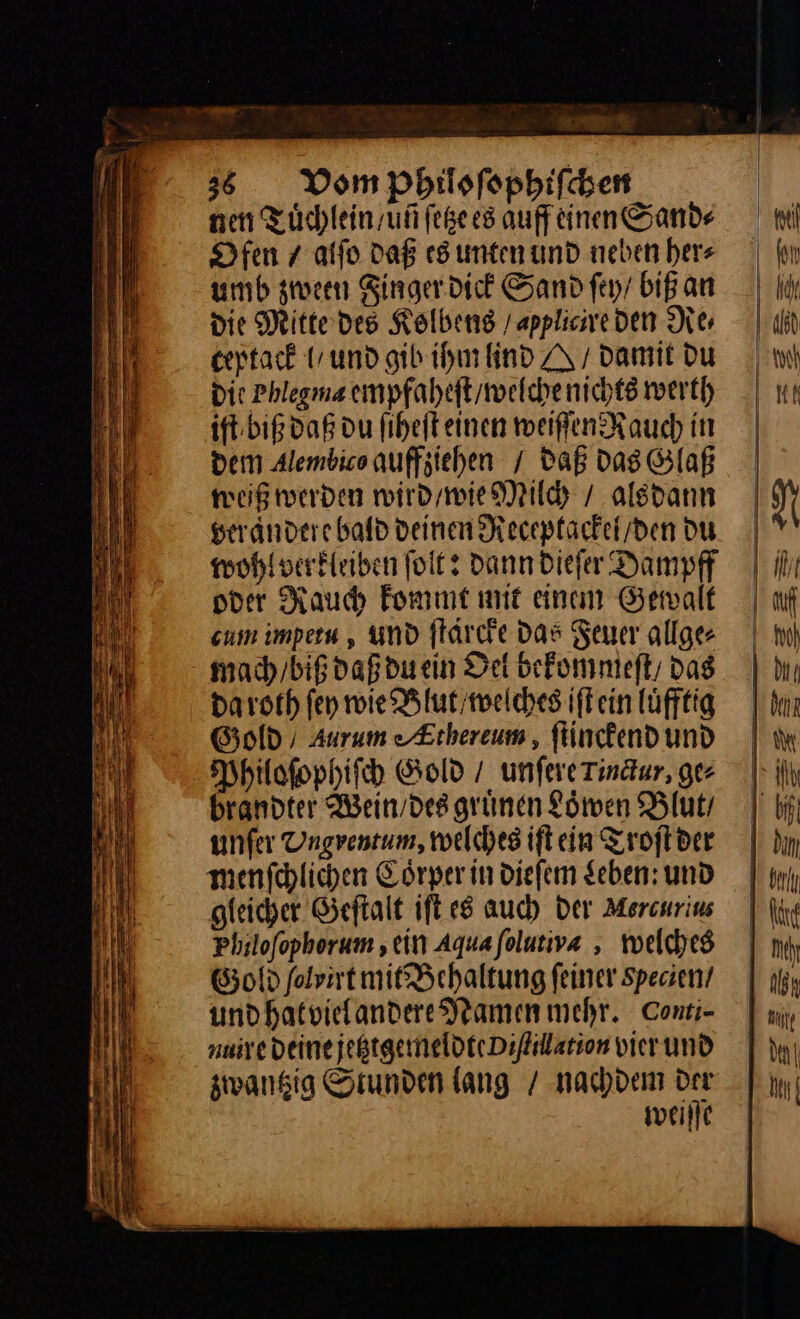 36 Vom Philoſophiſchen
nen Tuͤchlein / uñ ſetze es auff einen Sand⸗
Ofen / alſo daß es unten und neben her⸗
umb zween Finger dick Sand ſey / biß an
die Mitte des Kolbens / applicire den Re⸗
ceptack l / und gib ihm lind △ / damit du
die Phlegma empfaheſt / welche nichts werth
iſt biß daß du ſiheſt einen weiſſen Rauch in
dem Alembico auffziehen / daß das Glaß
weiß werden wird / wie Milch / alsdann
veraͤndere bald deinen Receptackel / den du
wohl verkleiben ſolt: dann dieſer Dampff
oder Rauch kommt mit einem Gewalt
cum impetu, und ſtaͤrcke das Feuer allge⸗
mach / biß daß du ein Oel bekommeſt / das
da roth ſey wie Blut / welches iſt ein luͤfftig
Gold / Aurum Æthereum, ſtinckend und
Philoſophiſch Gold / unſere Tinctur, ge⸗
brandter Wein / des gruͤnen Loͤwen Blut /
unſer Vngventum, welches iſt ein Troſt der
menſchlichen Coͤrper in dieſem Leben: und
gleicher Geſtalt iſt es auch der Mercurius
Philoſophorum, ein Aqua ſolutiva, welches
Gold ſolvirt mit Behaltung ſeiner Specien /
und hat viel andere Namen mehr. Conti-
nuire deine jetztgemeldte Diſtillation vier und
zwantzig Stunden lang / nachdem der
weiſſe